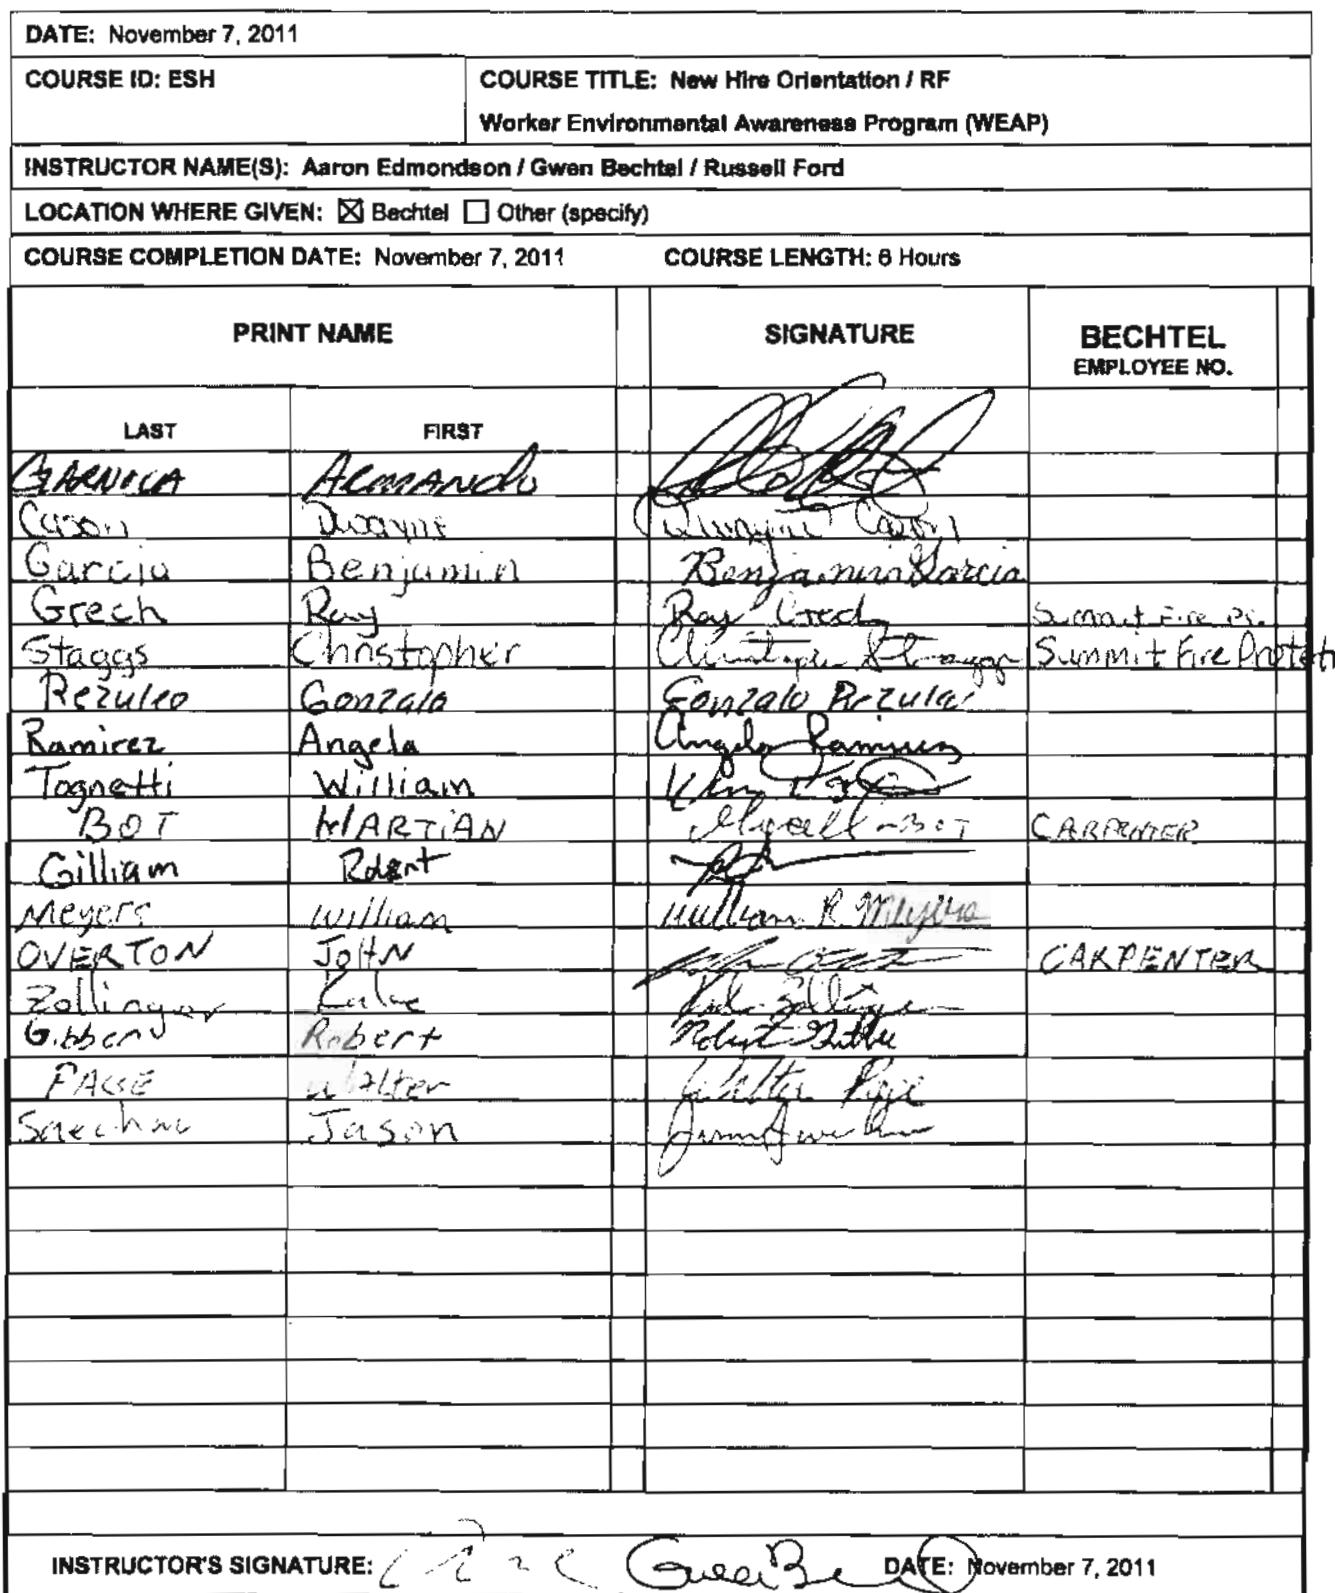 DATE: November 7, 2011
COURSE ID: ESH COURSE TITLE: New Hire Orientation / RF
Worker Environmental Awareness Program (WEAP)
INSTRUCTOR NAME(S): Aaron Edmondson / Gwen Bechtel / Russell Ford
LOCATION WHERE GIVEN: ☒ Bechtel ☐ Other (specify)
COURSE COMPLETION DATE: November 7, 2011 COURSE LENGTH: 6 Hours
PRINT NAME SIGNATURE BECHTEL
EMPLOYEE NO.
LAST FIRST
GARNICA ARMANDO
Cason Dwayne Dwayne Cason
Garcia Benjamin Benjamin Garcia
Grech Ray Ray Grech Summit Fire
Staggs Christopher Christopher Staggs Summit Fire Protect
Rezuleo Gonzalo Gonzalo
Ramirez Angela Angela Ramirez
Tognetti William
BOT MARTIAN BOT CARPENTER
Gilliam Robert
Meyers William William R. Meyers
OVERTON JOHN CARPENTER
Zollinger
Robert Robert
PAGE Walter Walter Page
Jason
INSTRUCTOR'S SIGNATURE: DATE: November 7, 2011